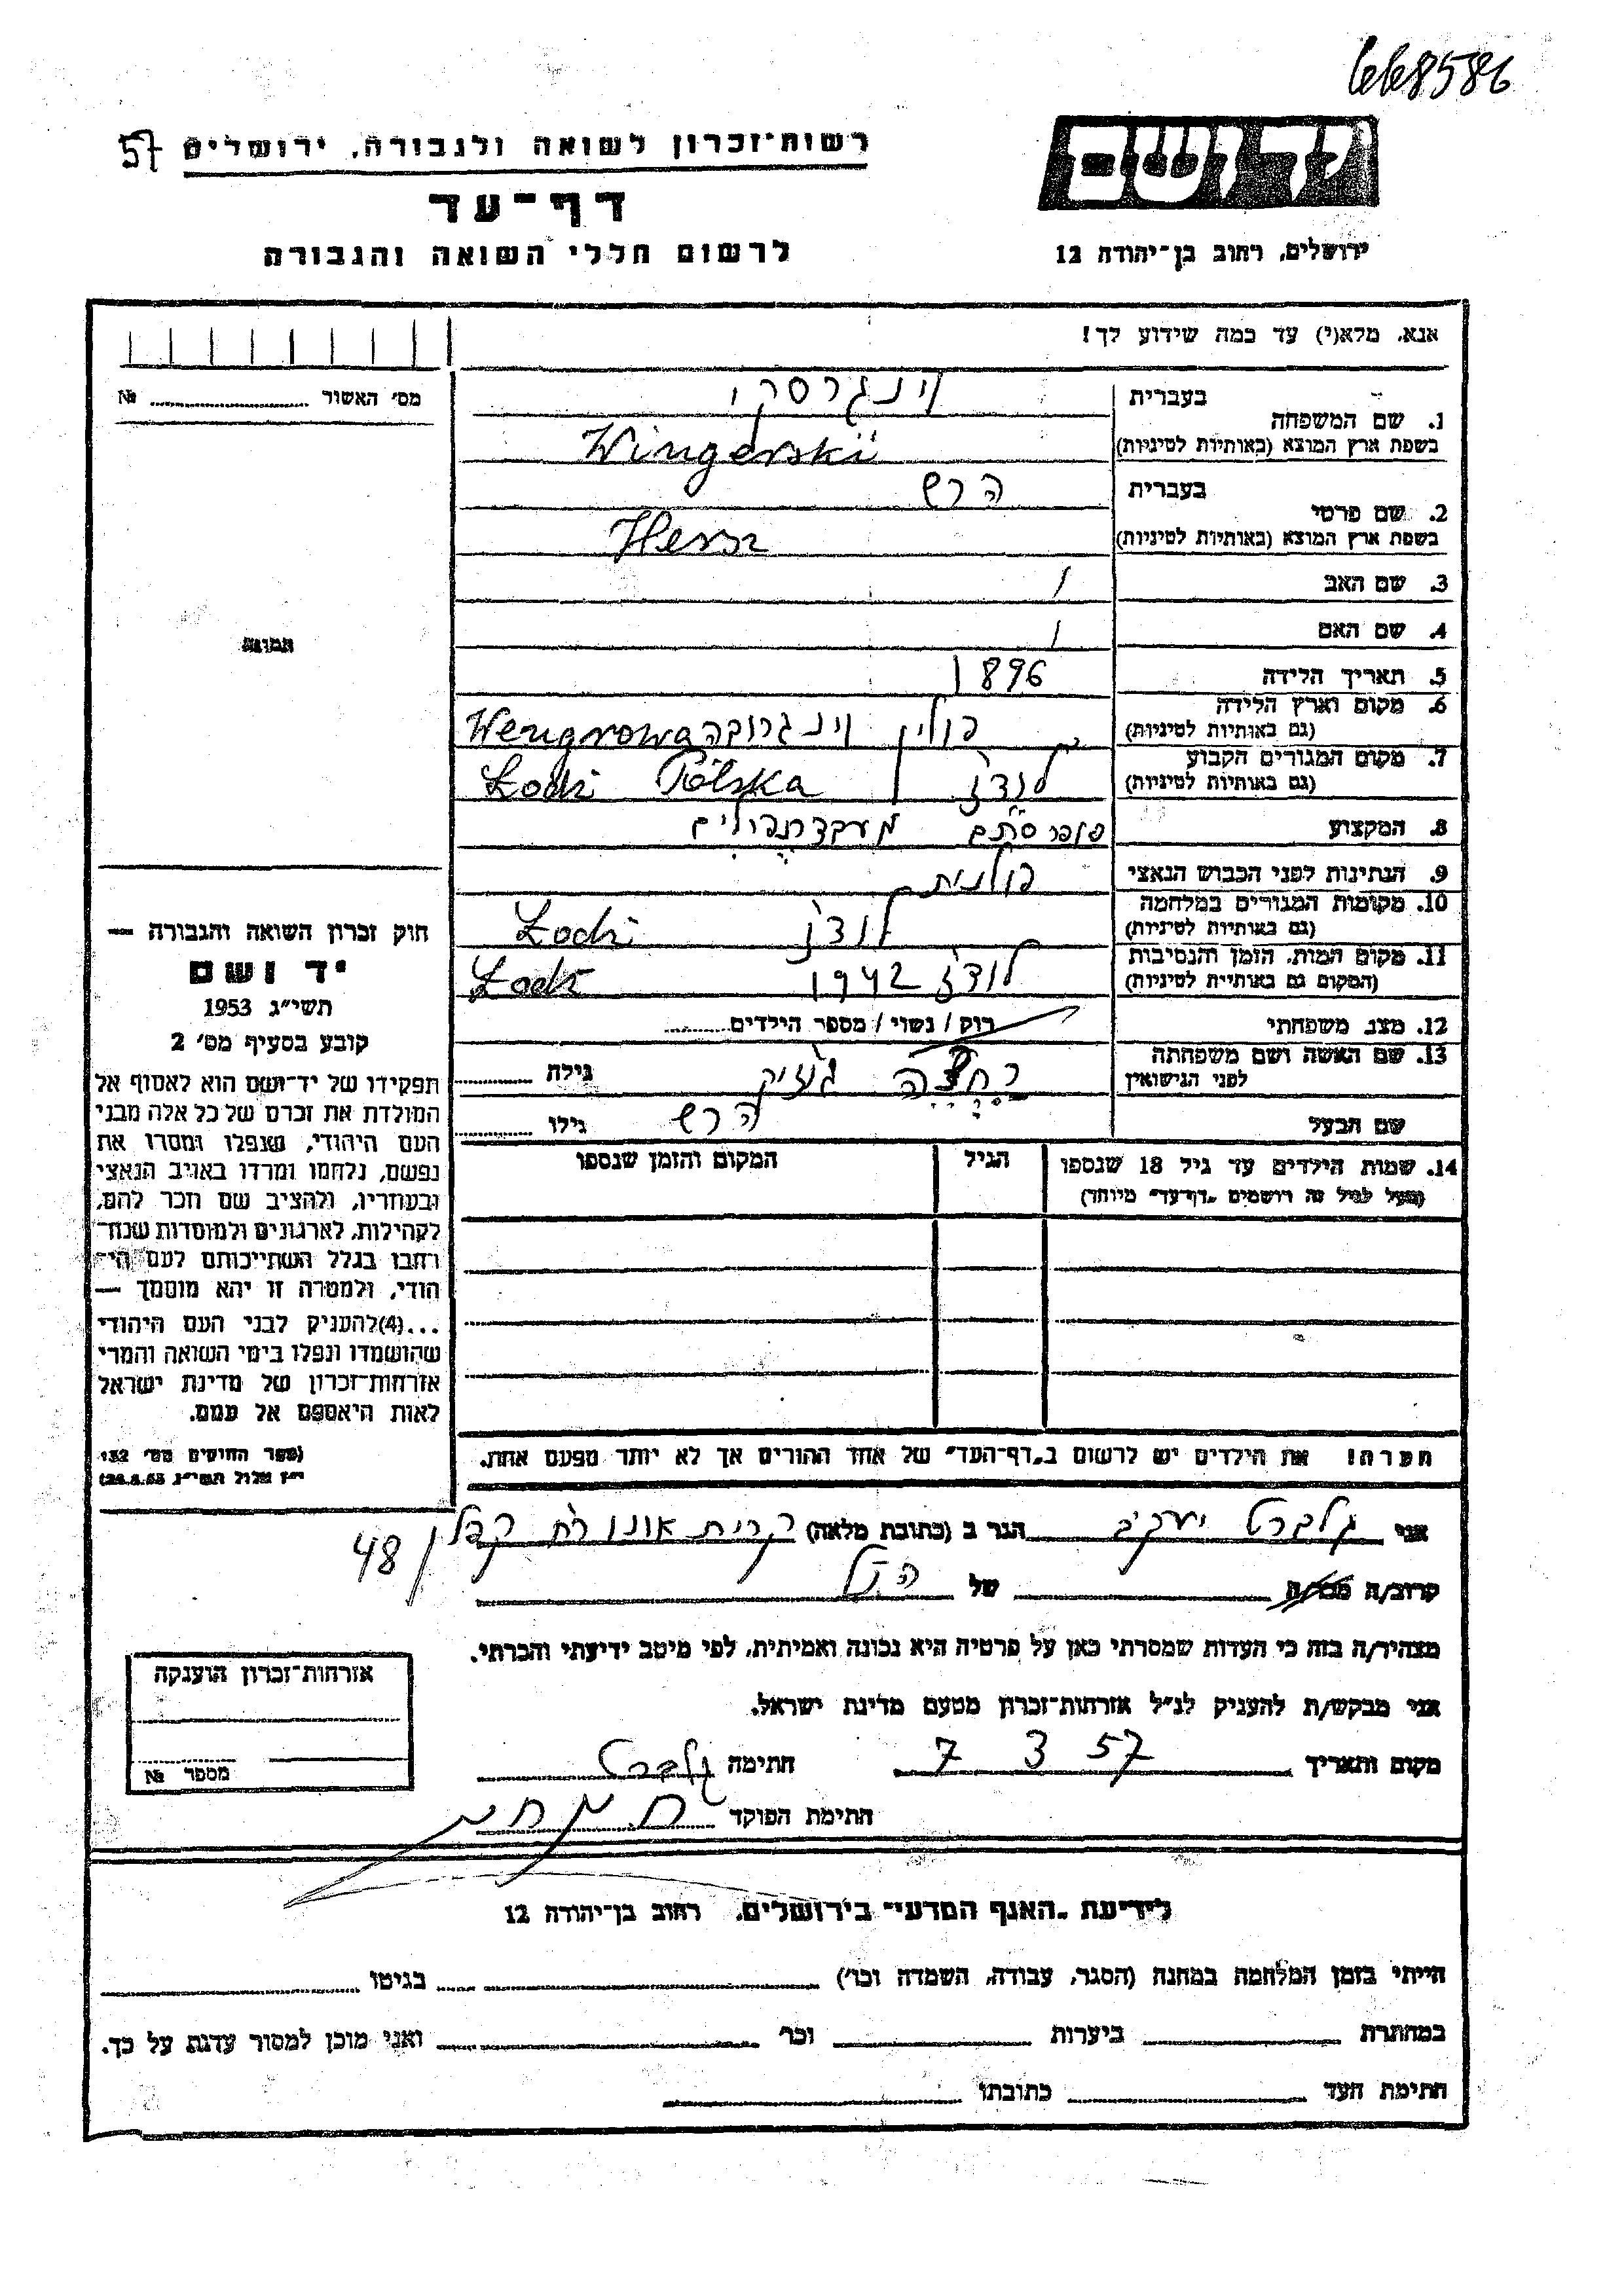 668586
57 רשות־זכרון לשואה ולגבורה, ירושלים
יד ושם
דף־עד
לרשום חללי השואה והגבורה
ירושלים, רחוב בן־יהודה 12
אנא, מלא(י) עד כמה שידוע לך!
מס׳ האשור №
בעברית וינגרסקי
1. שם המשפחה
בשפת ארץ המוצא (באותיות לטיניות) Wingerski
בעברית הרש
2. שם פרטי
בשפת ארץ המוצא (באותיות לטיניות) Hersz
3. שם האב /
4. שם האם /
תמונה
5. תאריך הלידה 1896
6. מקום וארץ הלידה
(גם באותיות לטיניות) פולין וינגרובה Wengrowa
7. מקום המגורים הקבוע
(גם באותיות לטיניות) לודז Polska Łodz
8. המקצוע סופר סתם
9. הנתינות לפני הכבוש הנאצי פולנית
10. מקומות המגורים במלחמה
(גם באותיות לטיניות) לודז Łodz
11. מקום המות, הזמן והנסיבות
(המקום גם באותיות לטיניות) לודז 1942 Łodz
12. מצב משפחתי רווק / נשוי / מספר הילדים
13. שם האשה ושם משפחתה
לפני הנישואין גילה
שם הבעל הרש גילו
14. שמות הילדים עד גיל 18 שנספו הגיל המקום והזמן שנספו
(מעל לגיל זה רושמים „דף־עד״ מיוחד)
חוק זכרון השואה והגבורה —
יד ושם
תשי״ג 1953
קובע בסעיף מס׳ 2
תפקידו של יד־ושם הוא לאסוף אל
המולדת את זכרם של כל אלה מבני
העם היהודי, שנפלו ומסרו את
נפשם, נלחמו ומרדו באויב הנאצי
ובעוזריו, ולהציב שם וזכר להם,
לקהילות, לארגונים ולמוסדות שנח־
רחבו בגלל השתייכותם לעם הי־
הודי, ולמטרה זו יהא מוסמך —
...(4)להעניק לבני העם היהודי
שהושמדו ונפלו בימי השואה והמרי
אזרחות־זכרון של מדינת ישראל
לאות היאספם אל עמם.
(ספר החוקים מס׳ 132
י״ז אלול תשי״ג, 28.8.53)
הערה! את הילדים יש לרשום ב„דף־העד״ של אחד ההורים אך לא יותר מפעם אחת.
אני גלברט יעקב הגר ב (כתובת מלאה) קרית אונו רח קפלן 48
קרוב/ה מכר/ה של הנל
מצהיר/ה בזה כי העדות שמסרתי כאן על פרטיה היא נכונה ואמיתית, לפי מיטב ידיעתי והכרתי.
אני מבקש/ת להעניק לנ״ל אזרחות־זכרון מטעם מדינת ישראל.
מקום ותאריך 7 3 57 חתימה גלברט
חתימת הפוקד
אזרחות־זכרון הוענקה
מספר №
לידיעת „האגף המדעי״ בירושלים, רחוב בן־יהודה 12
הייתי בזמן המלחמה במחנה (הסגר, עבודה, השמדה וכו׳) בגיטו
במחתרת ביערות וכו׳ ואני מוכן למסור עדות על כך.
חתימת העד כתובתו